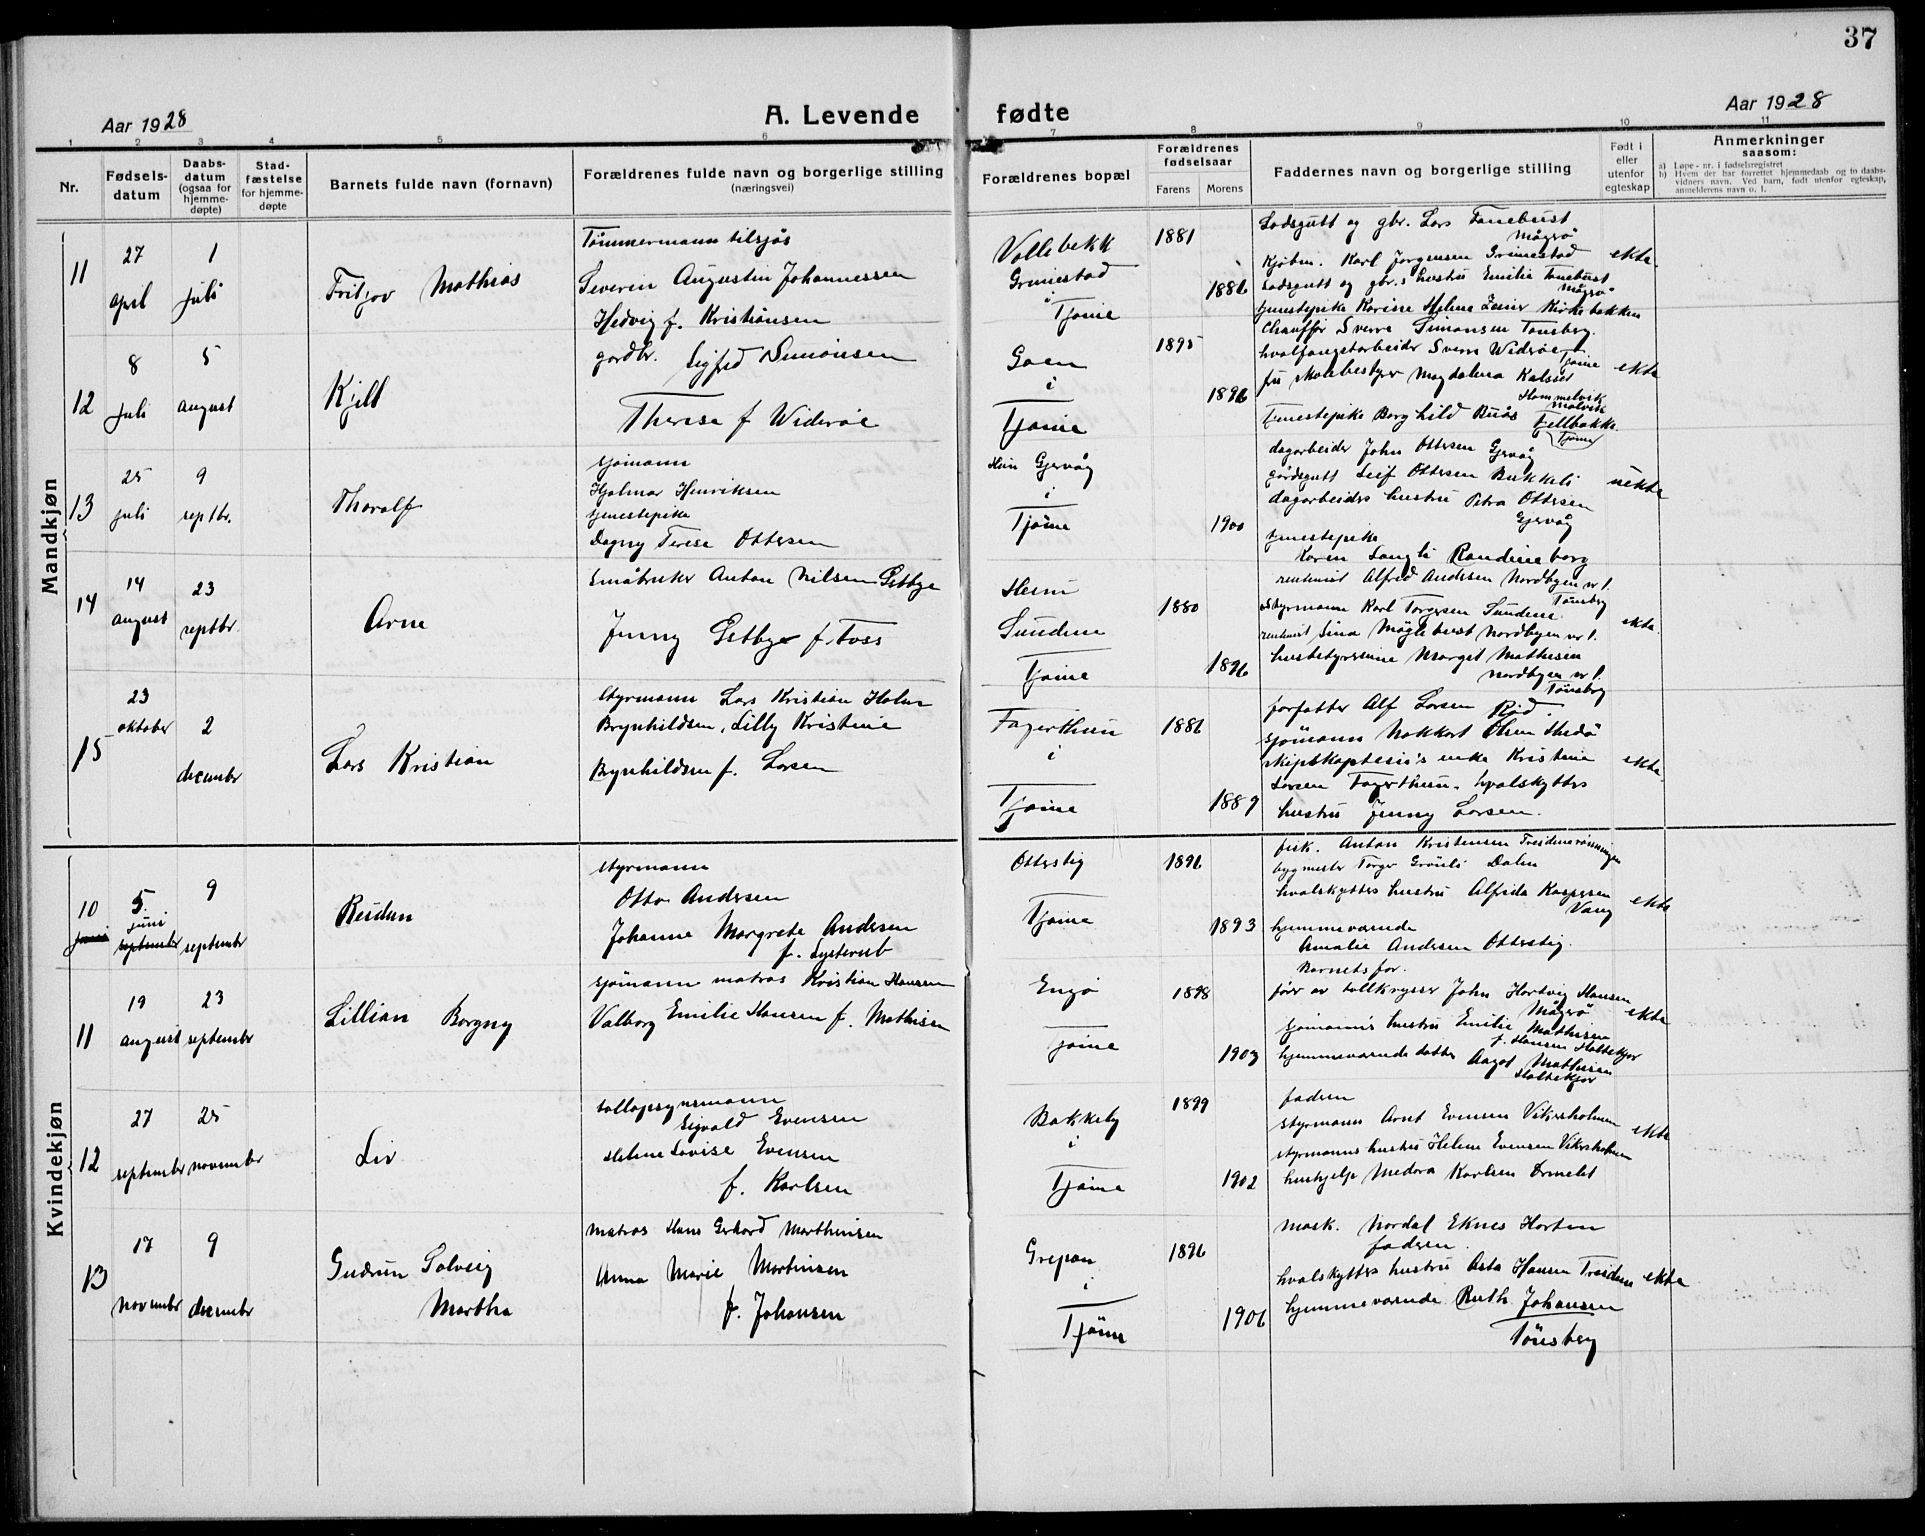 37
Aar 1928
A. Levende fødte
Aar 1928
1 2 3 4 5 6 7 8 9 10 11
Nr.
Fødsels-
datum
Daabs-
datum
(ogsaa for
hjemme-
døpte)
Stad-
fæstelse
for hjemme-
døpte
Barnets fulde navn (fornavn)
Forældrenes fulde navn og borgerlige stilling
(næringsvei)
Forældrenes bopæl
Forældrenes
fødselsaar
Farens
Morens
Faddernes navn og borgerlige stilling
Født i
eller
utenfor
egteskap
Anmerkninger
saasom:
a) Løpe-nr. i fødselsregistret
b) Hvem der har forrettet hjemmedaab og to daabs-
vidners navn. Ved barn, født utenfor egteskap,
anmelderens navn o. l.
Mandkjøn
11
27
april
1
juli
Fritjov Mathias
Tömmermann tilsjøs
Severin Augustin Johannessen
Hedvig f. Kristiansen
Vollebekk
Grimestad
i
Tjøme
1881
1886
Lodsgutt og gbr. Lars Tanebust
Mågerö
Kjøbm. Karl Jørgensen Grimestad
Lodsgutt og gbr.s hustru Emilie Tanebust
Mågerö
tjenestepike Karine Helene Kirkebakken
ekte.
12
8
juli
5
august
Kjell
gardbr. Sigfred Simonsen
Therese f Widerøe
Goen
i
Tjøme
1895
1896
Chauffør Sverre Simonsen Tønsberg.
hvalfangstarbeider Sverre Widerøe Tjøme
frk skolebestyrer Magdalena Kalset
Hommelvik
Malvik
Tjenestepike Borghild Buås Fjellbakke
Tjøme
ekte
13
25
juli
9
septbr.
Thoralf
sjømann
Hjalmar Henriksen
tjenestepike
Dagny Terese Ottersen
Hun Gjervåg
i
Tjøme
1900
dagarbeider John Ottersen Gjervåg
gårdsgutt Leif Ottersen Bukkeli
dagarbeiders hustru Petra Ottersen
Gjervåg
tjenestepike
Karen Langli Randineborg
uekte
14
14
august
23
septbr.
Arne
Småbruker Anton Nilsen Getbye
Jenny Getbye f. Foss
Heim
Sundene
Tjøme
1880
1896
rentenist Alfred Andersen Nordbyen nr 1.
Tønsberg
styrmann Karl Torgersen Sundene
rentenist Lina Møglebust Nordbyen nr 1.
husbestyrerinne Margit Mathisen
Nordbyen nr 1.
Tønsberg
ekte.
15
23
oktober
2
decembr
Lars Kristian
Styrmann Lars Kristian Holm
Brynhildsen, Lilly Kristine
Brynhildsen f. Larsen
Fagertun
i
Tjøme
1886
1889
forfatter Alf Larsen Rød.
sjømann Olsen
skipskapteins enke Kristine
Larsen Fagertun. hvalskytters
hustru Jenny Larsen.
ekte
Kvindekjøn
10
5.
juni
9
september
Reidun
styrmann
Otto Andersen
Johanne Margrete Andersen
Otterstig
Tjøme
1896
1893
fisk. Anton Kristensen
bygmester Torger Grønli Dalen
hvalskytters hustru Alfrida Kaspersen
Vang
hjemmeværende
Amalie Andersen Otterstig.
ekte
11
19
august
23
september
Lillian Borgny
sjømann matros Kristian Hansen
Valborg Emilie Hansen f. Mathisen
Engø
Tjøme
1898
1903
Barnets far.
fører av tollkrysser John Hartvig Hansen
Mågerø
sjømanns hustru Emilie Mathisen
f. Hansen Holtekjær
hjemmeværende datter Aagot Mathisen
Holtekjær
ekte
12
27
september
25
november
Liv
tollopsynsmann
Sigvald Evensen
Helene Lovise Evensen
f. Karlsen
Bakkeby
i
Tjøme
1899
1902
faderen
styrmann Arnt Evensen Vikersholmen
styrmanns hustru Helene Evensen Vikersholmen
hushjelp Medora Karlsen Ormelet
ekte
13
17
november
9
decembr
Gudrun Solveig
Martha
matros Hans Gerhard Marthinsen
Anna Marie Martinsen
f. Johansen
Grepan
i
Tjøme
1896
1906
mask. Nordal Eknes Horten
faderen.
hvalskytters hustru Asta Hansen Treidene
hjemmeværende Ruth Johansen
Tönsberg
ekte